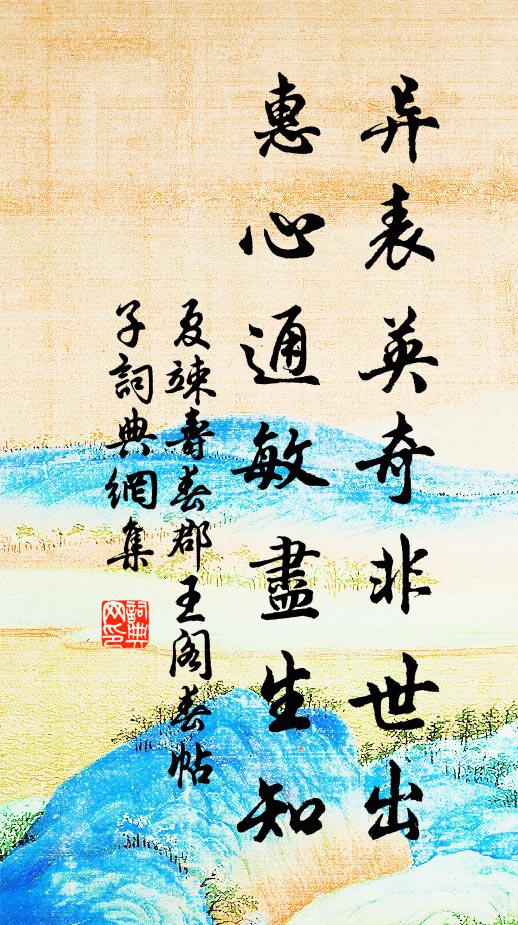 异表英奇非世出
惠心通敏盡生知
夏竦壽春郡王阁春帖
子詞典網集
詞典
网印